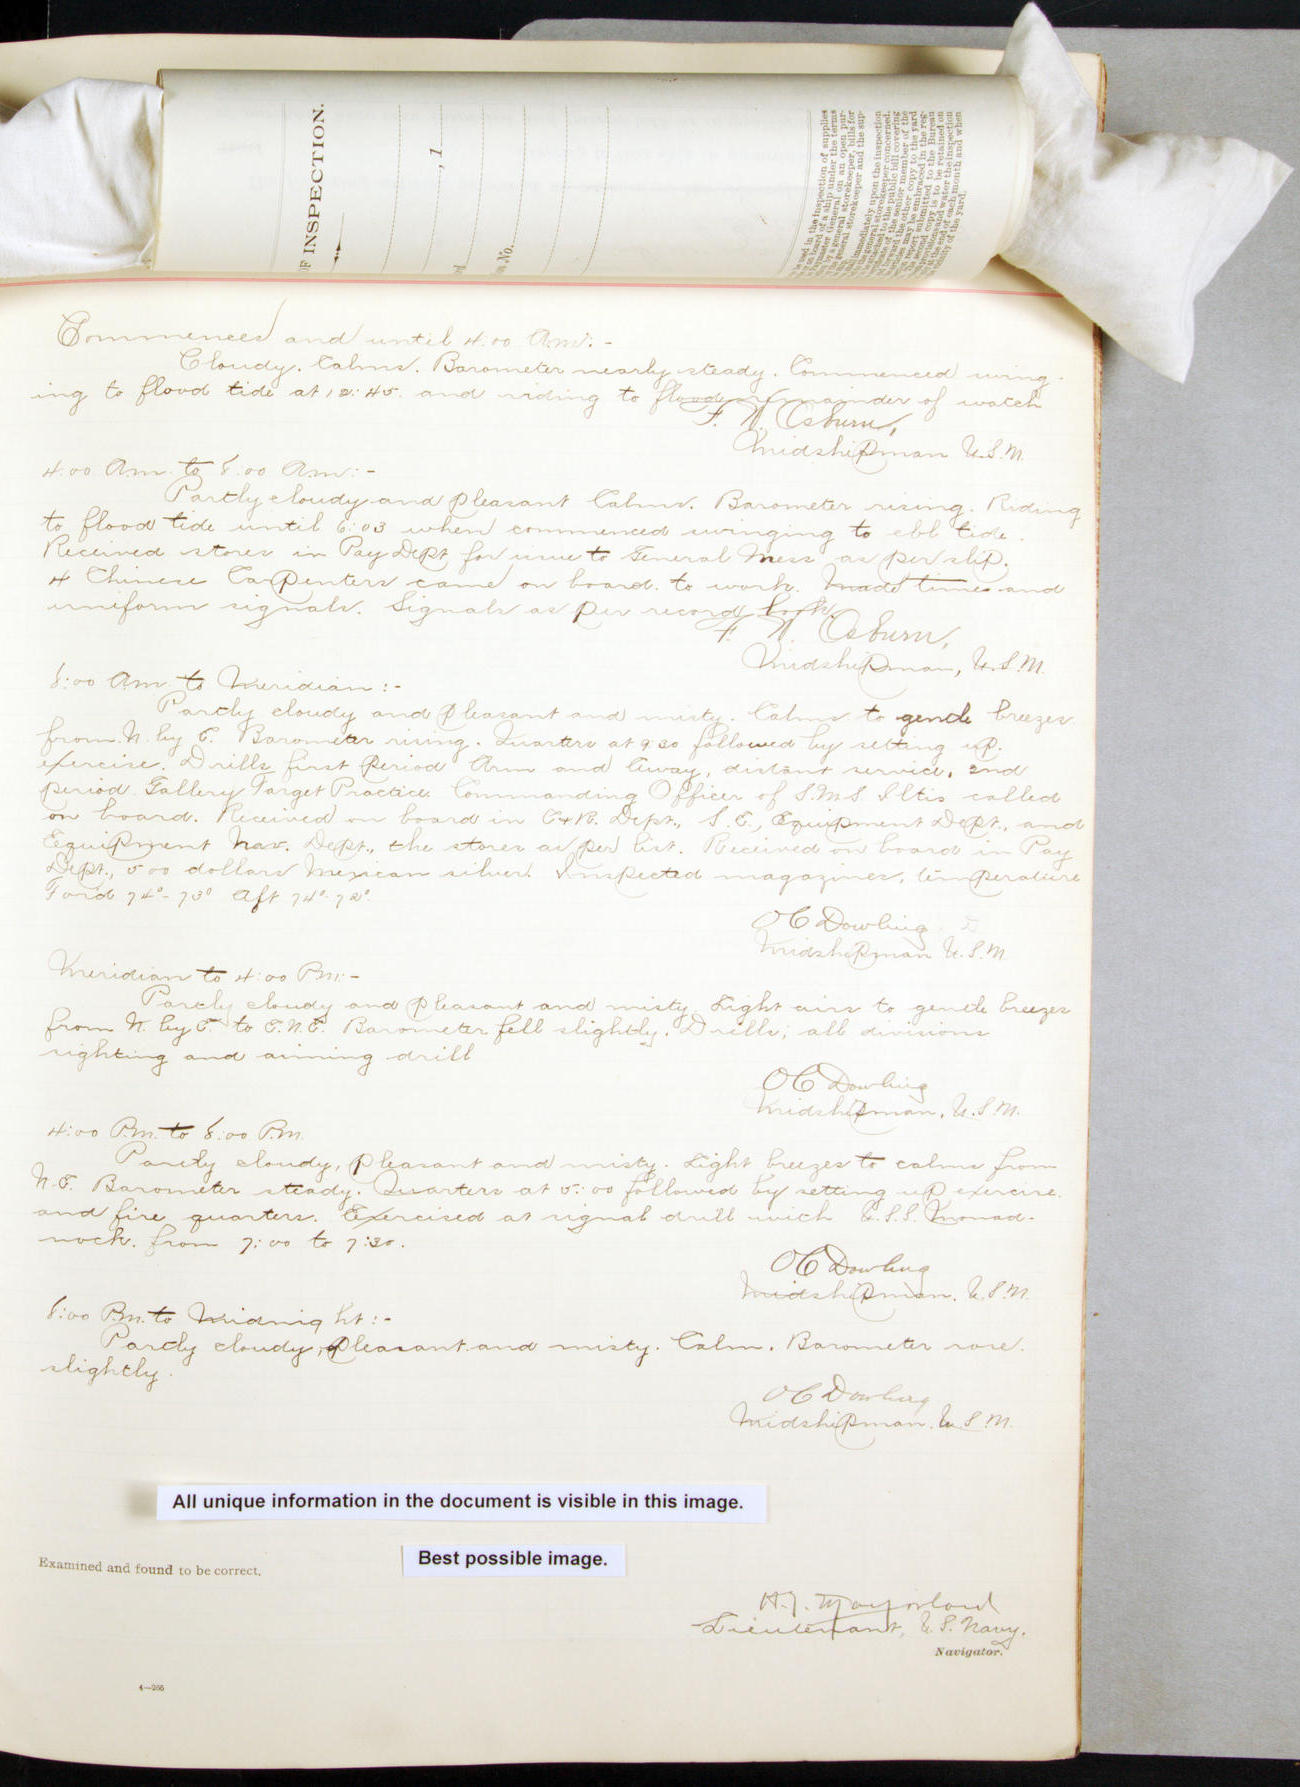 OF INSPECTION.
, 1
Commenced and until 4:00 A.M:-
Cloudy. Calms. Barometer nearly steady. Commenced swing-
ing to flood tide at 12:45. and riding to flood remainder of watch
F. W. Osburn,
Midshipman U.S.N.
4:00 A.m. to 8:00 A.m:-
Partly cloudy and pleasant Calms. Barometer rising. Riding
to flood tide until 6:03 when commenced swinging to ebb tide.
Received stores in Pay Dept for issue to General Mess as per slip.
4 Chinese Carpenters came on board. to work. Made time and
uniform signals. Signals as per record book.
F. W. Osburn,
Midshipman, U.S.N.
8:00 A.m. to Meridian:-
Partly cloudy and pleasant and misty. Calms to gentle breezes
from N. by E. Barometer rising. Quarters at 9:30 followed by setting up.
exercise. Drills first period Arm and Away, distant service, 2nd
period Gallery Target Practice. Commanding Officer of S.M.S. Iltis called
on board. Received on board in C&R. Dept., S.E., Equipment Dept., and
Equipment Nav. Dept., the stores as per list. Received on board in Pay
Dept., 500 dollars Mexican silver. Inspected magazines, temperature
For'd 74°-73° Aft 74°-72°
O C Dowling
Midshipman U.S.N.
Meridian to 4:00 P.m:-
Partly cloudy and pleasant and misty Light airs to gentle breezes
from N. by E. to E.N.E. Barometer fell slightly. Drills; all divisions
sighting and aiming drill
O C Dowling
Midshipman, U.S.N.
4:00 P.m. to 8:00 P.m.
Partly cloudy, pleasant and misty. Light breezes to calms from
N.E. Barometer steady. Quarters at 5:00 followed by setting up exercise.
and fire quarters. Exercised at signal drill with U.S.S. Monad-
nock. from 7:00 to 7:30.
O C Dowling
Midshipman. U.S.N.
8:00 P.m. to Midnight:-
Partly cloudy, pleasant and misty. Calm. Barometer rose.
slightly.
O C Dowling
Midshipman. U.S.N.
All unique information in the document is visible in this image.
Best possible image.
Examined and found to be correct.
Lieutenant, U.S. Navy.
Navigator.
4—266